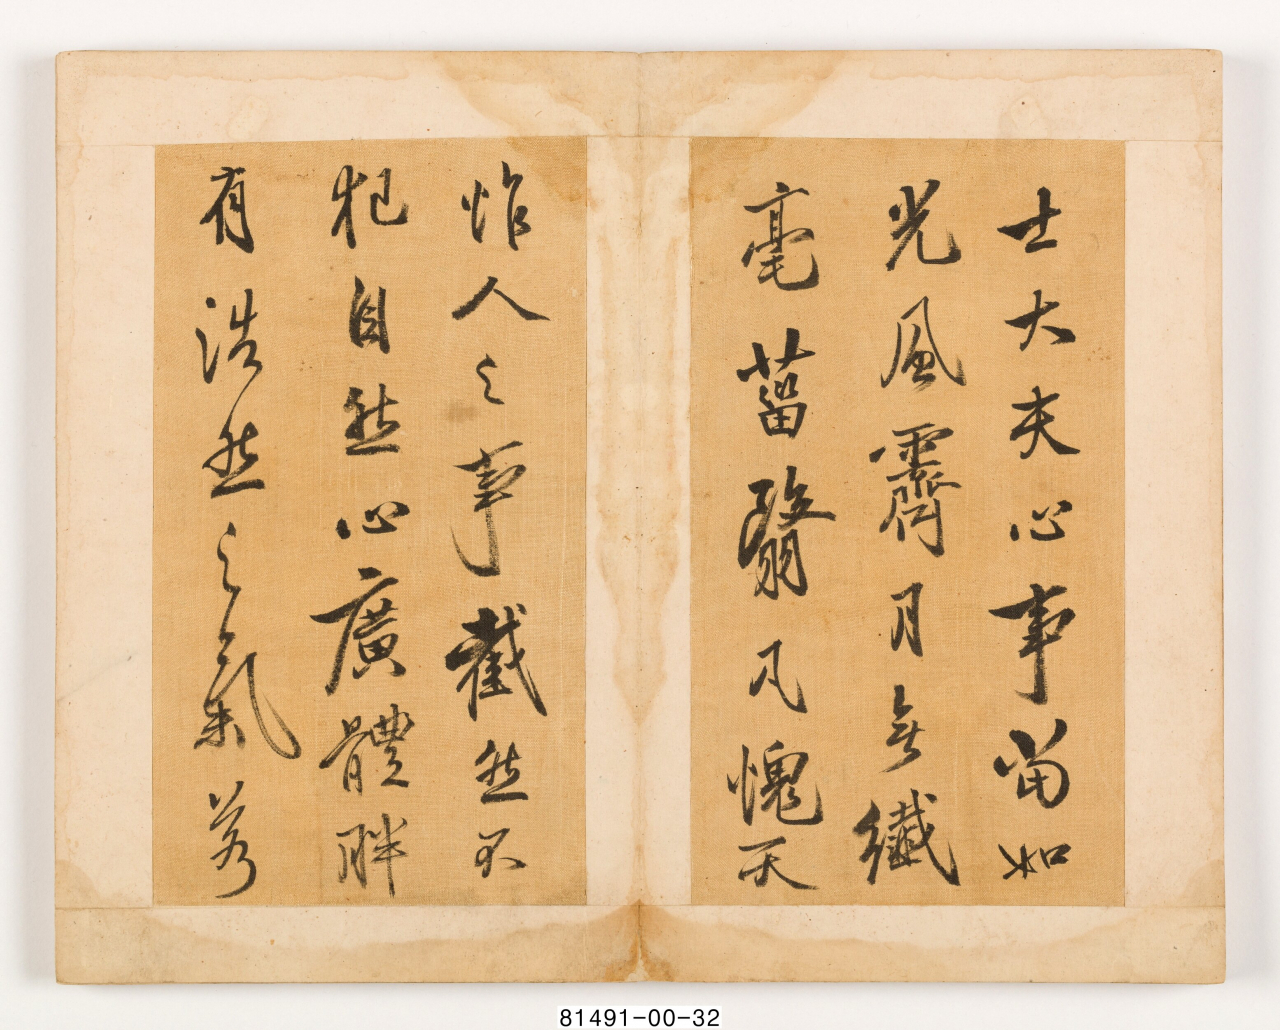 士大夫心事當如
光風霽月無纖
毫菑翳凡愧天
怍人之事截然不
犯自然心廣體胖
有浩然之氣若
81491-00-32